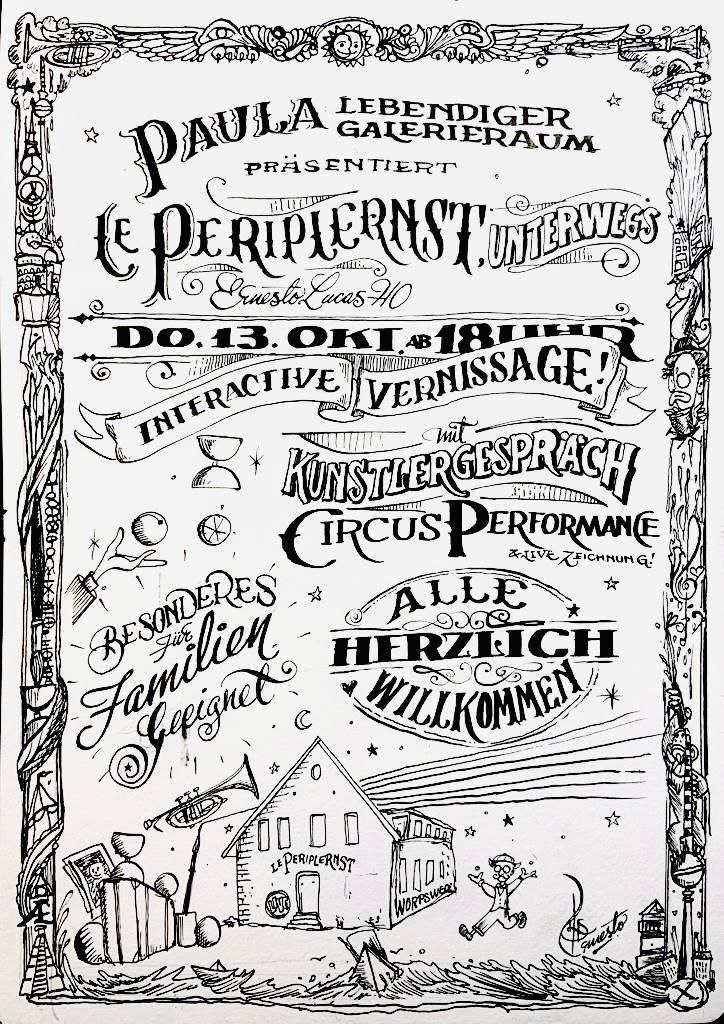 PAULA LEBENDIGER
GALERIERAUM
PRÄSENTIERT
LE PERIPLERNST, UNTERWEGS
Ernesto Lucas HO
DO. 13. OKT. AB 18 UHR
INTERACTIVE VERNISSAGE!
mit
KUNSTLERGESPRÄCH
CIRCUS PERFORMANCE
& LIVE ZEICHNUNG!
BESONDERES
für
Familien
Geeignet
ALLE
HERZLICH
WILLKOMMEN
LE PERIPLERNST
WORPSWEDE
Ernesto